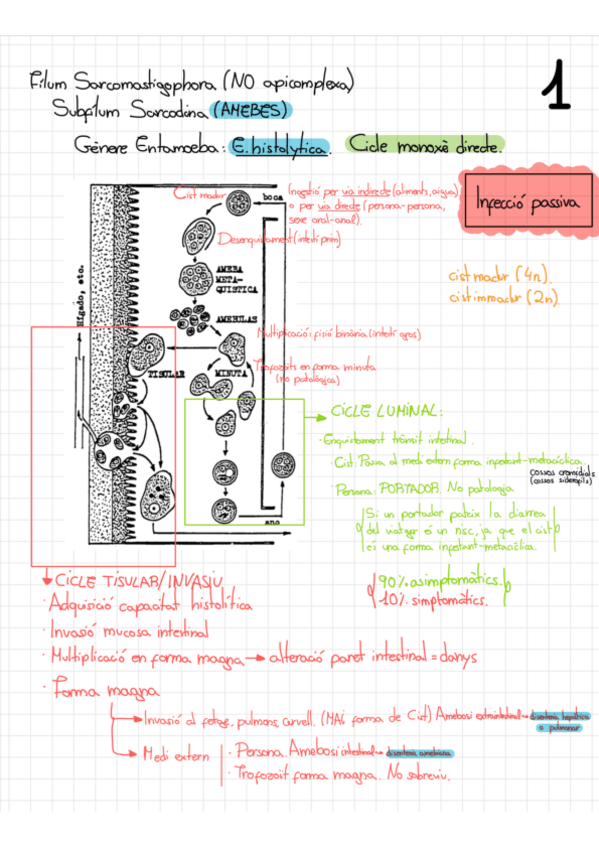 1
Fílum Sarcomastigophora (NO apicomplexa)
Subfílum Sarcodina (AMEBES)
Gènere Entamoeba: E. histolytica. Cicle monoxè directe.
Infecció passiva
Cist madur
boca
Ingestió per via indirecte (aliments, aigua)
o per via directe (persona-persona,
sexe oral-anal).
Desenquistament (intestí prim)
cist madur (4n).
cist immadur (2n)
AMEBA
META-
QUISTICA
AMEBULAS
Hígado, etc.
Multiplicació: fisió binària (intestí gros)
TISULAR
MINUTA
Trofozoits en forma minuta
(no patològica)
ano
CICLE LUMINAL:
· Enquistament trànsit intestinal.
· Cist. Passa al medi extern forma infestant-metacíclica.
cossos cromidials
(cossos sideròfils)
Persona: PORTADOR. No patologia
Si un portador pateix la diarrea
del viatger és un risc, ja que el cist
és una forma infestant-metacíclica.
90% asimptomàtics.
10% simptomàtics.
CICLE TISULAR/INVASIU
· Adquisició capacitat histolítica
· Invasió mucosa intestinal
· Multiplicació en forma magna → alteració paret intestinal = danys
· Forma magna
→ Invasió al fetge, pulmons, cervell. (MAI forma de Cist) Amebosi extraintestinal → disenteria hepàtica
o pulmonar
→ Medi extern
· Persona. Amebosi intestinal → disenteria amebiana
· Trofozoit forma magna. No sobreviu.